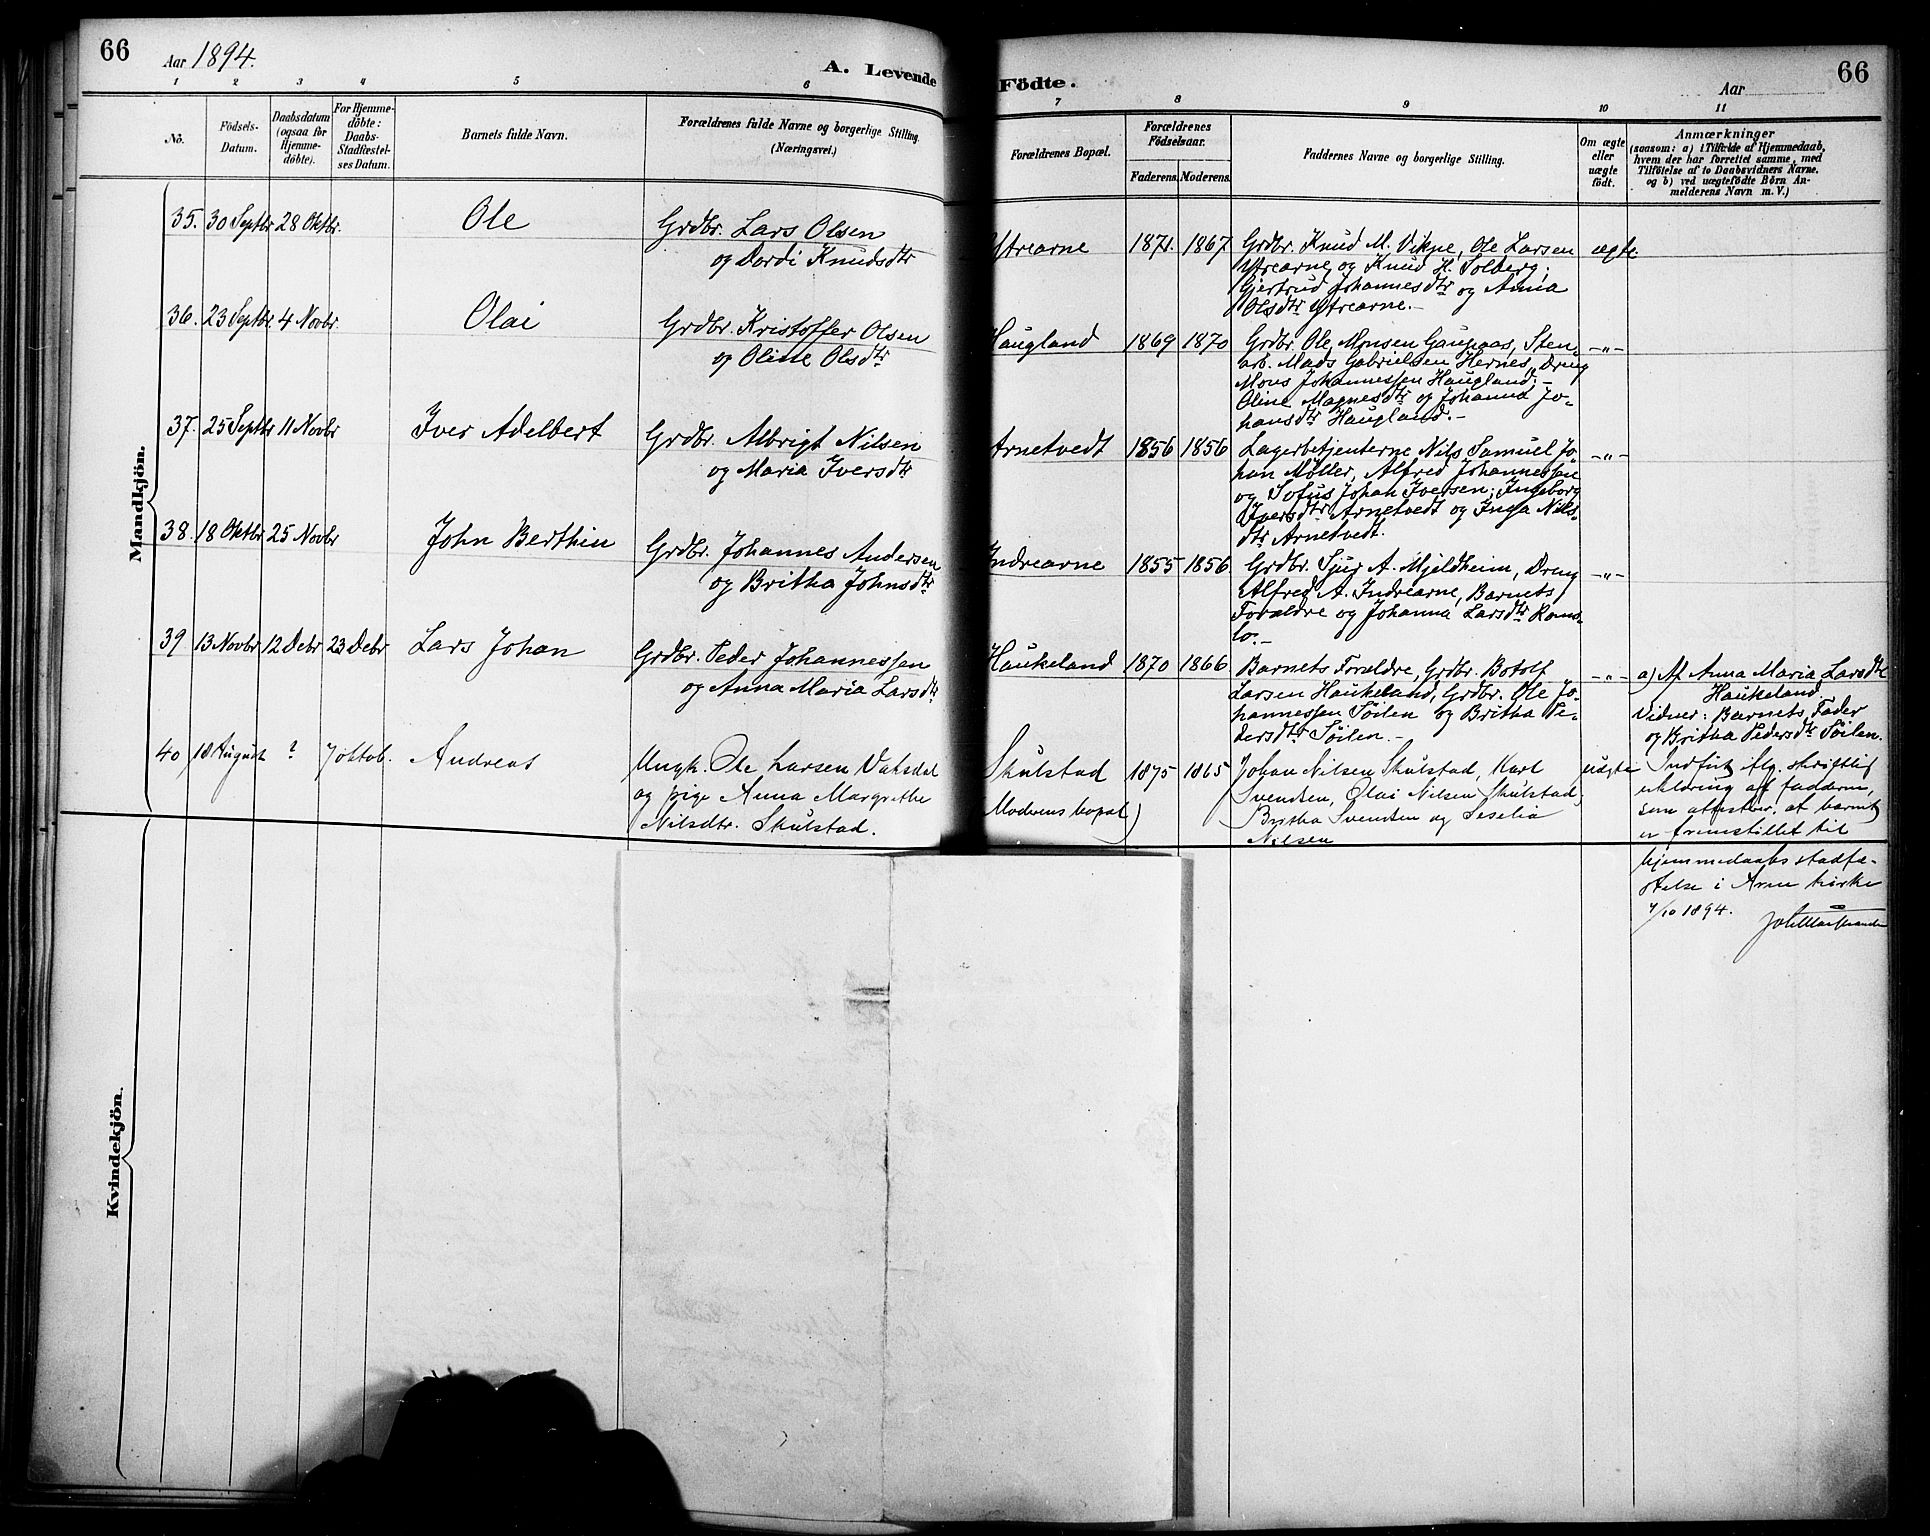 66
Aar 1894.
A. Levende Födte.
Aar
66
1 2 3 4 5 6 7 8 9 10 11
No.
Födsels-
Datum.
Daabsdatum
(ogsaa for
Hjemme-
døbte).
For Hjemme-
døbte:
Daabs-
Stadfæstel-
ses Datum.
Barnets fulde Navn.
Forældrenes fulde Navne og borgerlige Stilling.
(Næringsvei.)
Forældrenes Bopæl.
Forældrenes
Födselsaar.
Faderens. Moderens.
Faddernes Navne og borgerlige Stilling.
Om ægte
eller
uægte
født.
Anmærkninger
(saasom: a) i Tilfælde af Hjemmedaab,
hvem der har forrettet samme, med
Tilføielse af to Daabsvidners Navne,
og b) ved uægtefødte Børn An-
melderens Navn m. V.)
Mandkjön.
35. 30 Septbr 28 Oktbr. Ole
Grdbr. Lars Olsen
og Dordi Knudsdtr
Ytrearne 1871. 1867
Grdbr. Knud M. Vikne, Ole Larsen
Ytrearne og Knud H. Solberg;
Gjertrud Johannesdtr og Anna
Olsdtr Ytrearne.-
ægte
36. 23 Septbr. 4 Novbr. Olai
Grdbr. Kristoffer Olsen
og Oline Olsdtr
Haugland 1869 1870
Grdbr. Ole Monsen Gaupaas, Sten-
arb. Mads Gabrielsen Hernes, Dreng
Mons Johannessen Haugland;-
Oline Magnesdtr og Johanna Jo-
hansdtr Haugland.-
-"-
37. 25 Septbr 11 Novbr Iver Adelbert
Grdbr. Albrigt Nilsen
og Maria Iversdtr
Arnetvedt 1856 1856
Lagerbetjenterne Nils Samuel Jo-
han Møller, Alfred Johannessen
og Sofus Johan Iversen; Ingeborg
Iversdtr Arnetvedt og Inga Nils-
dtr Arnetvedt.
-"-
38. 18 Oktbr 25 Novbr John Berthin
Grdbr. Johannes Andersen
og Britha Johnsdtr
Indrearne 1855 1856
Grdbr. Sjur A. Mjeldheim, Dreng
Alfred A. Indrearne, Barnets
Forældre og Johanna Larsdtr Roms-
lo.-
-"-
39 13 Novbr 12 Debr 23 Debr Lars Johan
Grdbr. Peder Johannessen
og Anna Maria Larsdtr
Haukeland 1870 1866
Barnets Forældre, Grdbr. Botolf
Larsen Haukeland, Grdbr. Ole Jo-
hannessen Söilen og Britha Pe-
dersdtr Söilen.-
-"-
a) Af Anna Maria Larsdtr
Haukeland.
Vidner: Barnets Fader
og Britha Pedersdtr Söilen.
40 18 August ? 7 oktob. Andreas
Ungk. Ole Larsen Vaksdal
og pige Anna Margrethe
Nilsdtr. Skulstad.
Skulstad
Moderens bopæl)
1875 1865
Johan Nilsen Skulstad, Karl
Svendsen, Olai Nilsen Skulstad,
Britha Svendsen og Seselia
Nilsen
uægte
Indført iflg. skriftlig
erklæring af faddern,
som attesterer, at barnet
er fremstillet til
hjemmedaabs stadfæ-
stelse i Arne kirke
7/10 1894.
Kvindekjön.